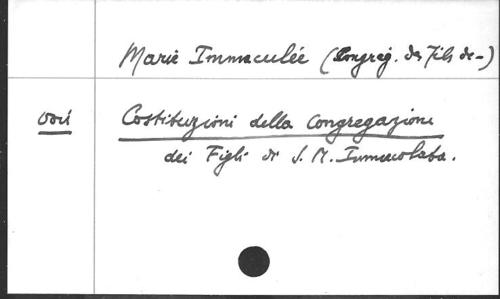 Marie Immaculée (Congrég. des Fils de-)
voir Costituzioni della Congregazione
dei Figli di S. M. Immacolata.